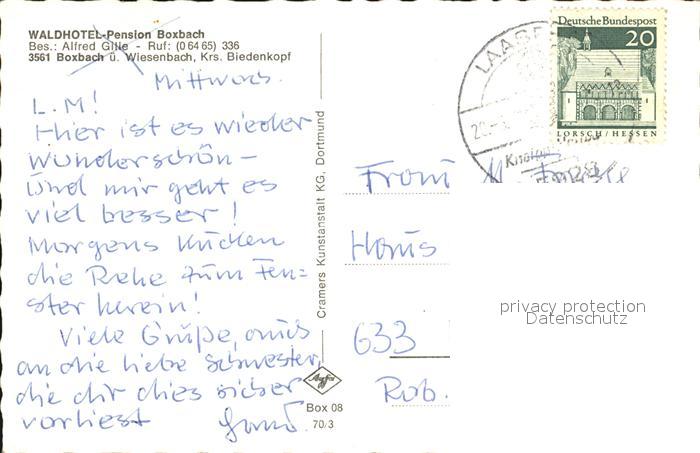 WALDHOTEL-Pension Boxbach
Bes.: Alfred Gille - Ruf: (0 64 65) 336
3561 Boxbach ü. Wiesenbach, Krs. Biedenkopf
Mittwoch.
L. M!
Hier ist es wieder
wunderschön –
Und mir geht es
viel besser!
Morgens kucken
die Rehe zum Fen=
ster herein!
Viele Grüße, auch
an die liebe Schwester,
die dir dies sicher
vorliest
Cramers Kunstanstalt KG, Dortmund
Agfa
Box 08
70/3
Deutsche Bundespost
20
LORSCH/HESSEN
LAAS
Frau M.
Haus
633
Rob.
privacy protection
Datenschutz